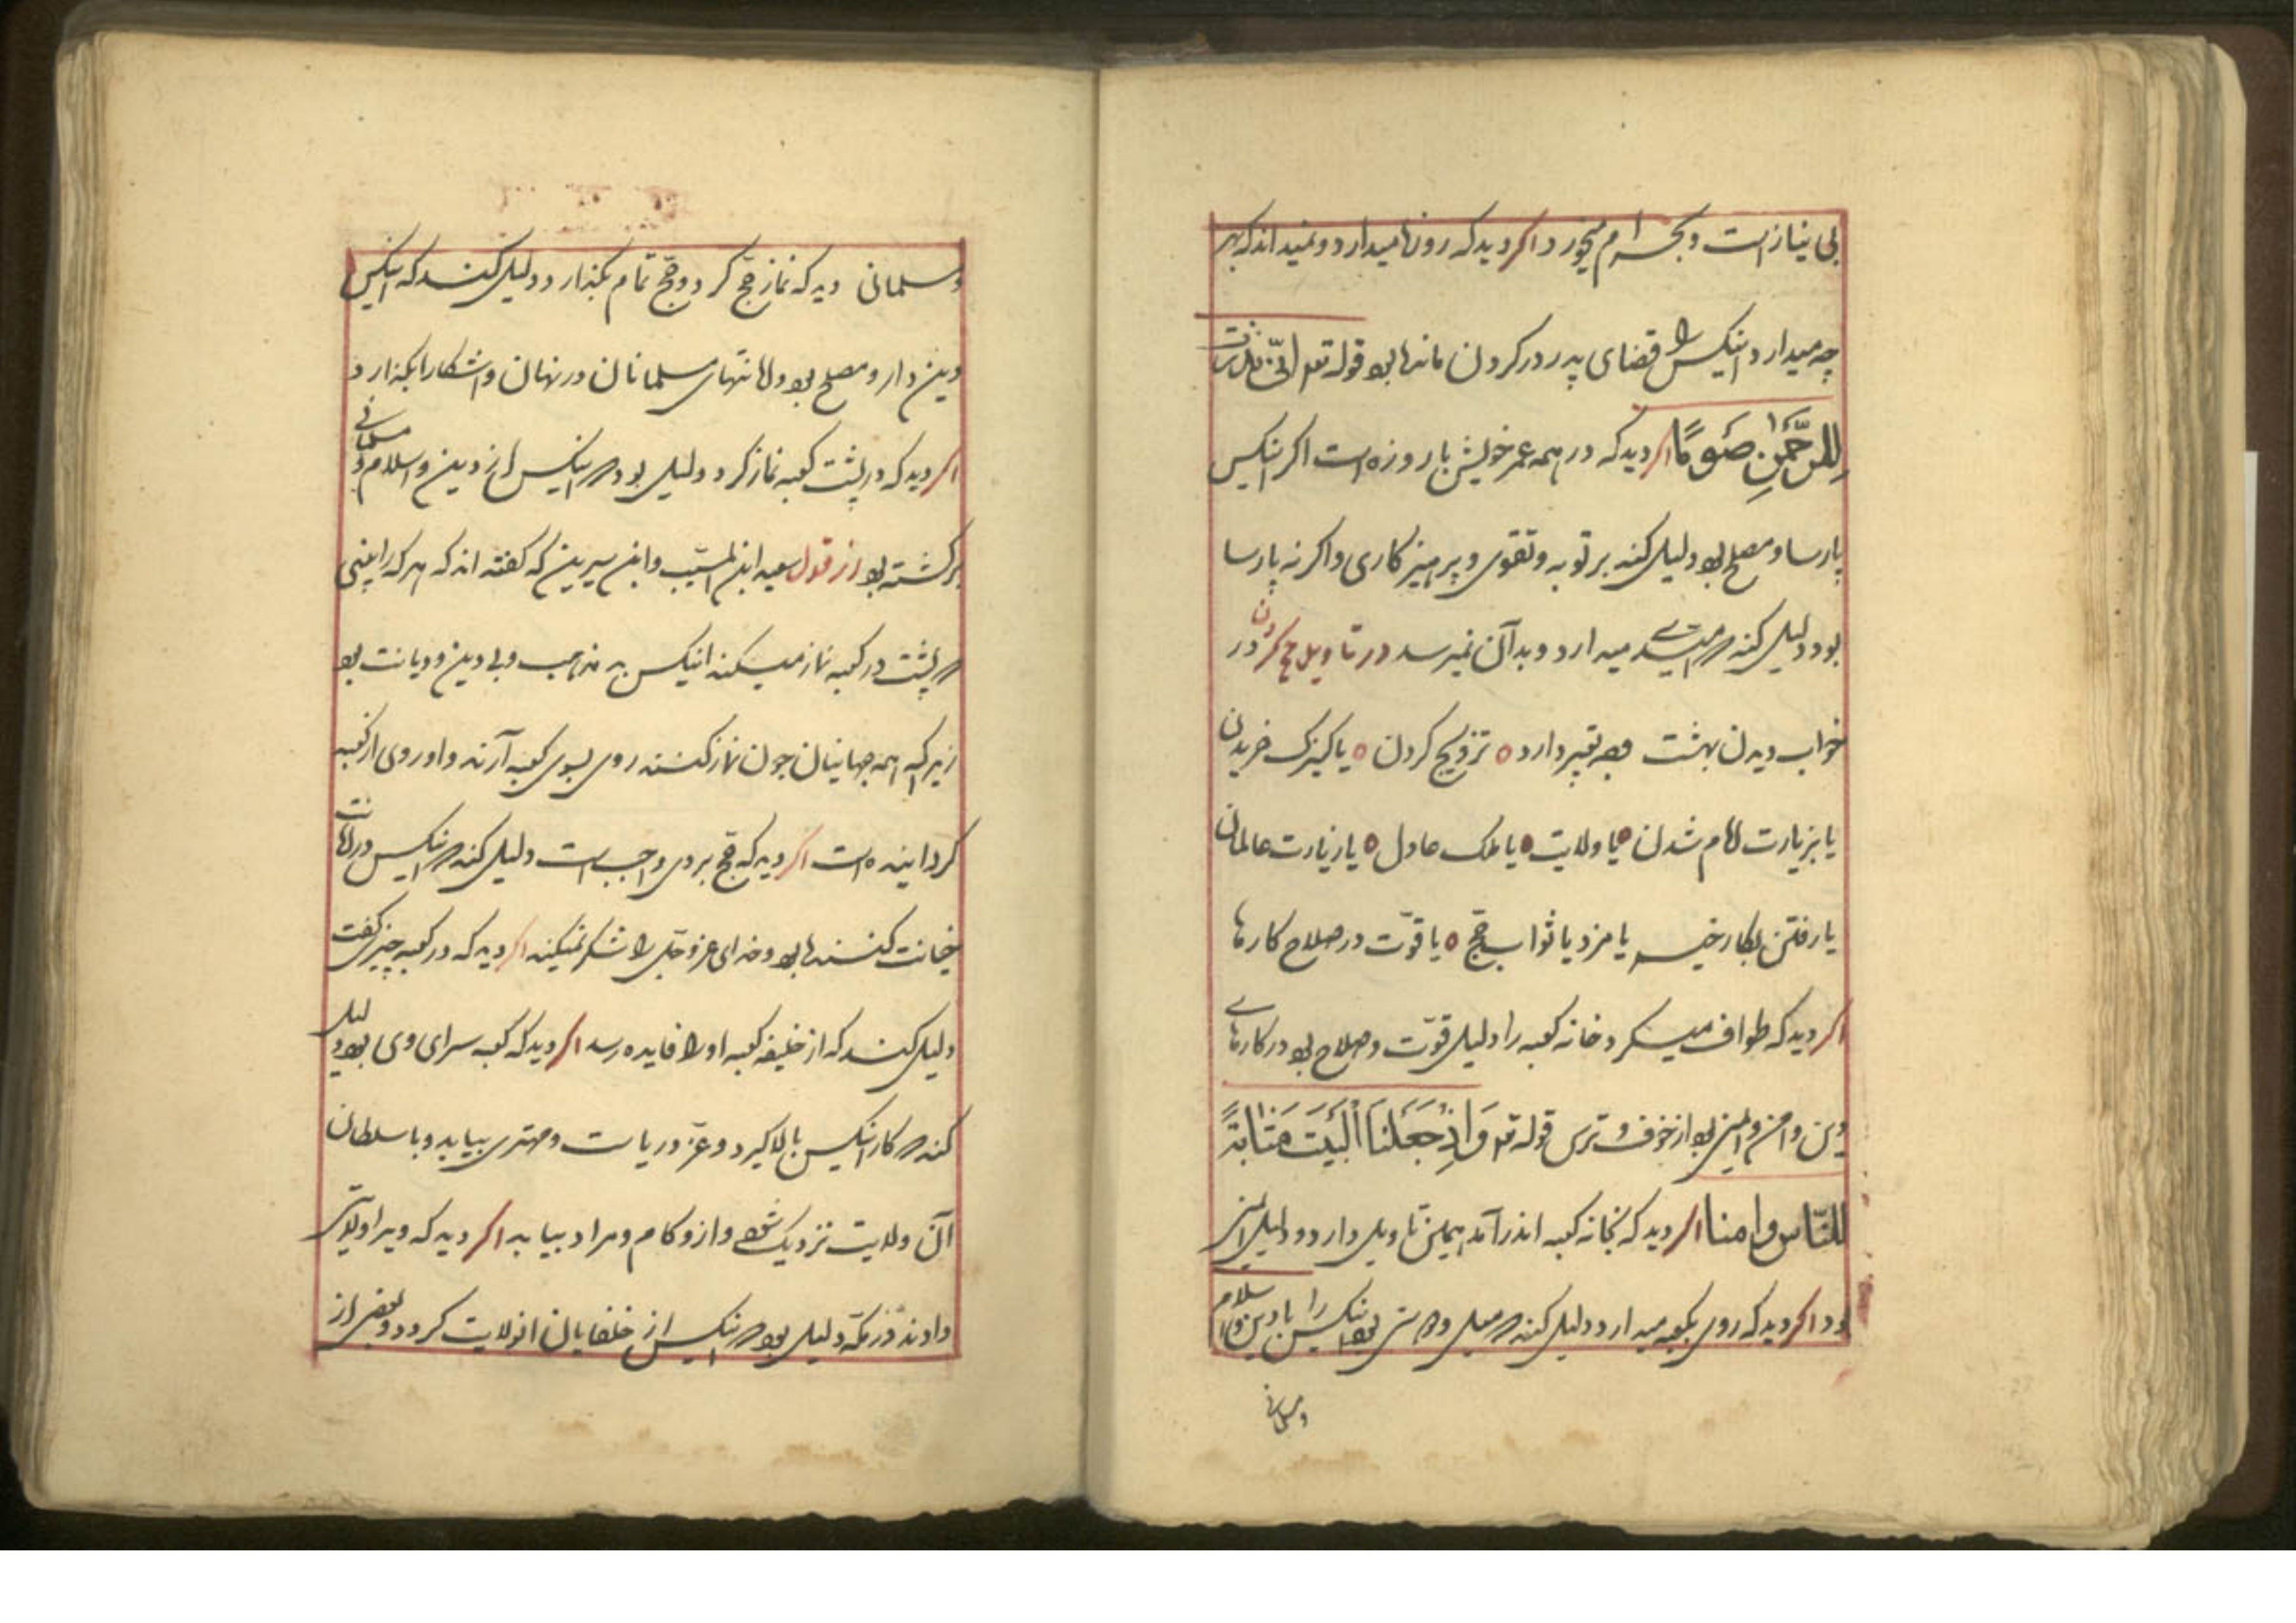 بی نیاز است و بحرام میخورد اکر دید که روزها میدارد و نمیداند که بهر
چه میدارد اینکس را قضای پدر در کردن مانده بود قوله تع انی نذرت
للرحمن صوما اکر دید که در همه عمر خویش با روزه است اکر اینکس
پارسا و مصلح بود دلیل کند بر توبه و تقوی و پرهیزکاری و اکر نه پارسا
بود دلیل کند که امیدی میدارد و بدان نمیرسد در تاویل حج کردن در
خواب دیدن بهشت تعبیر دارد تزویج کردن یا کنیزک خریدن
یا بزیارت امام شدن یا ولایت یا ملک عادل یا زیارت عالمان
یا رفتن بکار خیر یا مزد یا ثواب حج یا قوّت در صلاح کارها
اکر دید که طواف میکرد خانه کعبه را دلیل قوّت و صلاح بود در کارهای
دین و امن و ایمنی بود از خوف و ترس قوله تع وَاِذ جَعَلنَا البَیتَ مَثَابَةً
للنّاس وامنا اکر دید که بخانه کعبه اندر آمد همین تاویل دارد و دلیل ایمنی
بود اکر دید که روی بکعبه میدارد دلیل کند که میل و راستی بود اینکس را با دین و اسلام
و مسلمانی
و مسلمانی دید که نماز حج کرد و حج تمام بکذارد دلیل کند که اینکس
دین دار و مصلح بود و امانتهای مسلمانان در نهان و اشکارا بکذارد
اکر دید که در پشت کعبه نماز کرد دلیل بود که اینکس از دین و اسلام و مسلمانی
برکشته بود از قول سعید ابن المسیّب و ابن سیرین که کفته اند که هر که را بینی
که پشت در کعبه نماز میکند اینکس بد مذهب و بی دین و دیانت بود
زیرا که همه جهانیان چون نماز کنند روی بسوی کعبه آرند و او روی از کعبه
کردانیده است اکر دید که حج بر وی واجب است دلیل کند که اینکس در امانت
خیانت کننده بود و خدای عزوجل را شکر نمیکند اکر دید که در کعبه چیزی کفت
دلیل کند که از خلیفه کعبه او را فایده رسد اکر دید که کعبه سرای وی بود دلیل
کند که کار اینکس بالا کیرد و عزّ و ریاست و مهتری بیابد و با سلطان
آن ولایت نزدیک شود و ازو کام و مراد بیابد اکر دید که ویرا ولایتی
دادند در مکّه دلیل بود که اینکس از خلفا یا از ولایت کردد و بعضی از